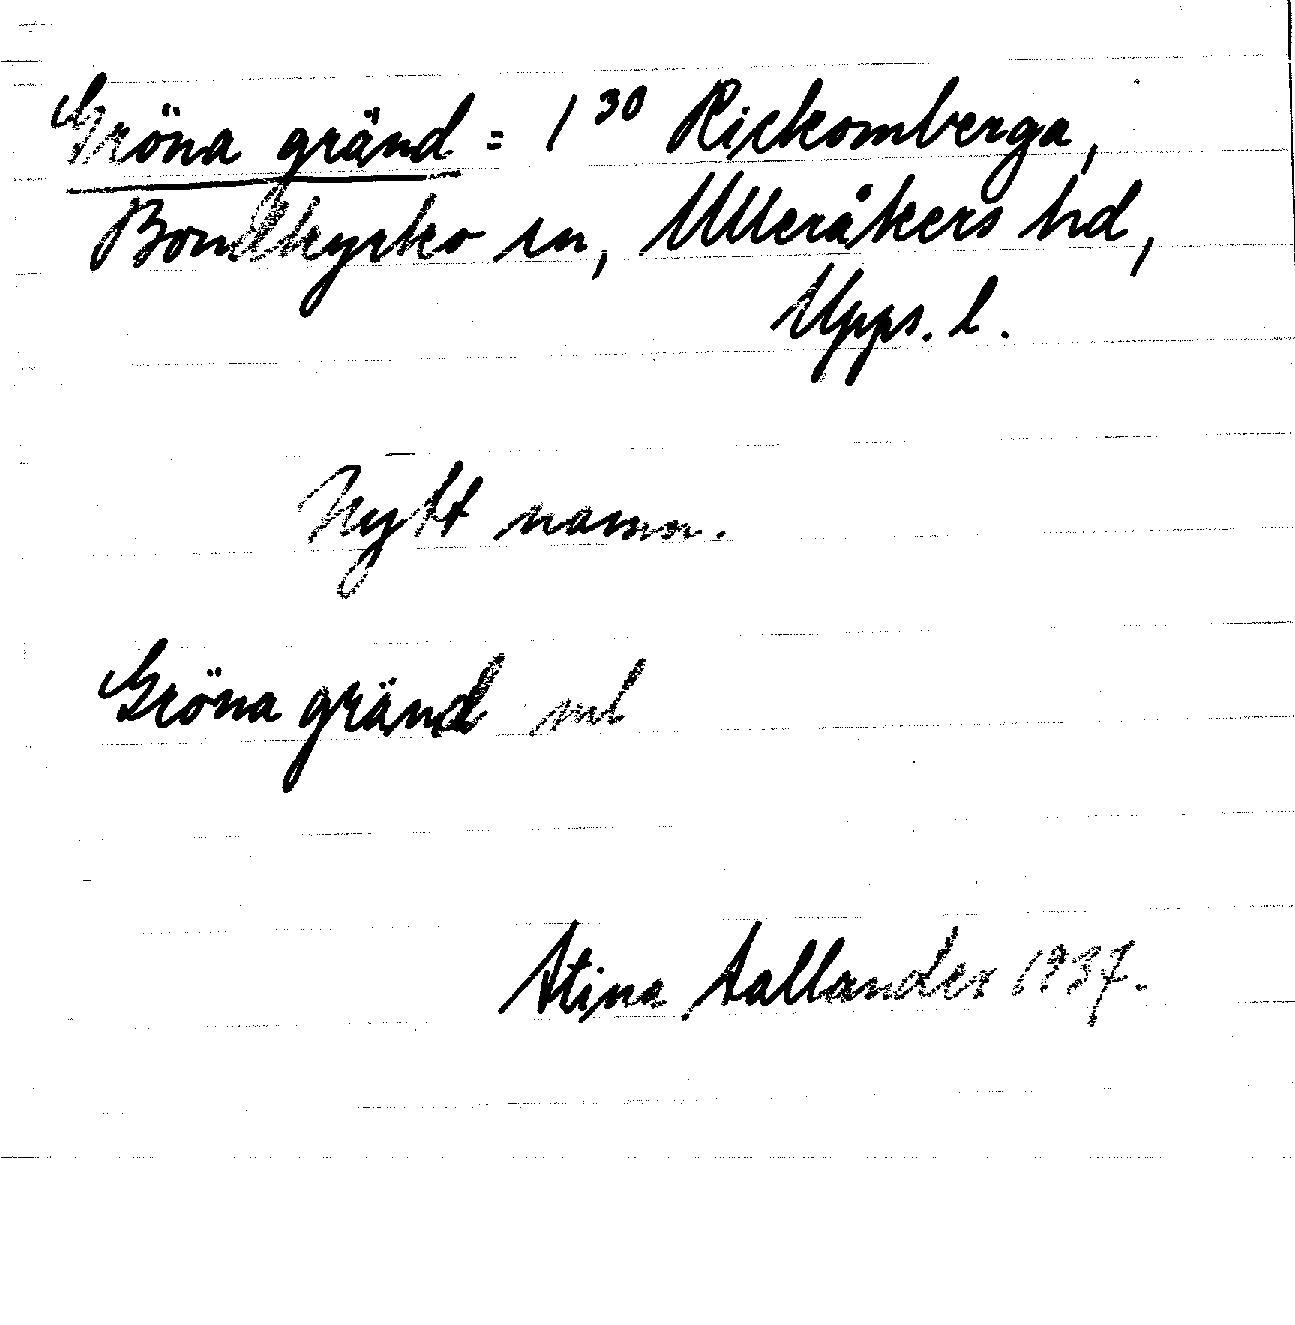 Gröna gränd = 1³⁰ Rickomberga,
Bondkyrko sn, Ulleråkers hd,
Upps. l.
Nytt namn.
Gröna gränd ml
Stina Sallander 1937.